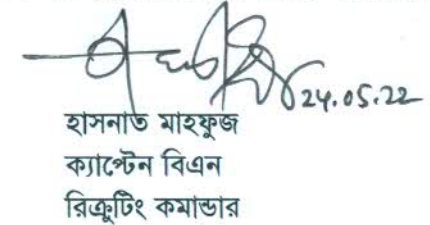 24.05.22
হাসনাত মাহফুজ
ক্যাপ্টেন বিএন
রিক্রুটিং কমান্ডার